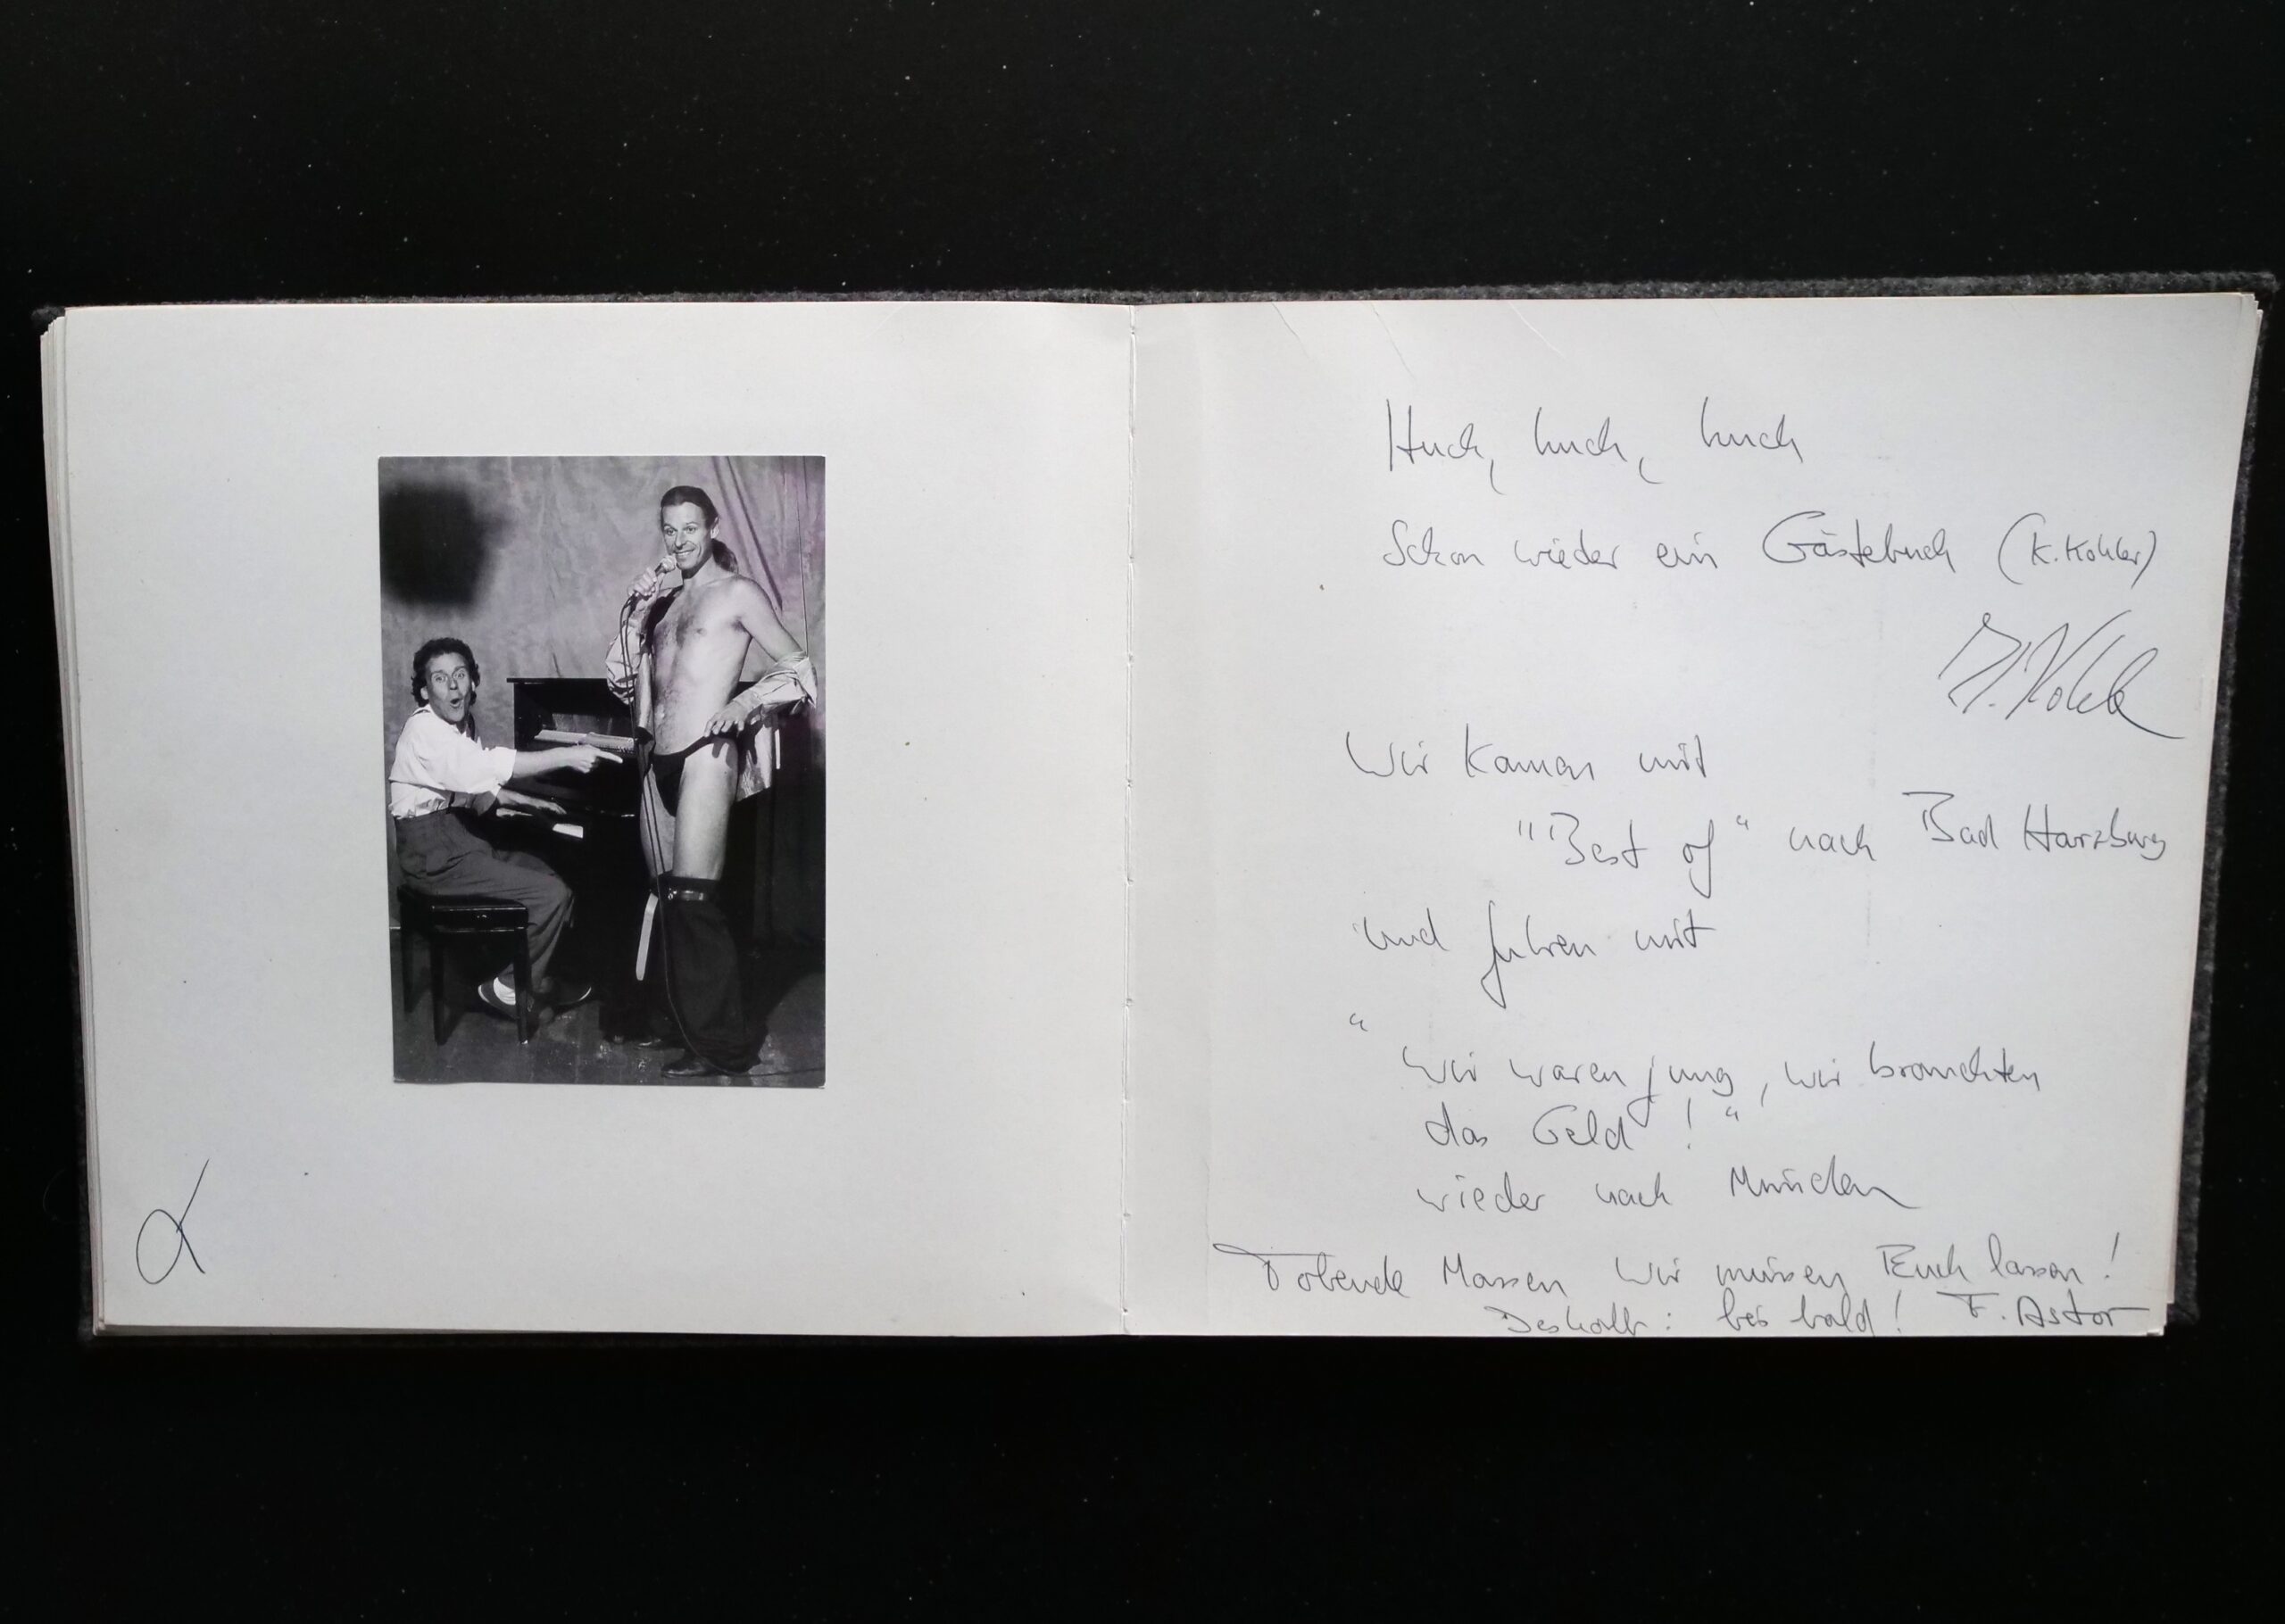 Huch, huch, huch
Schon wieder ein Gästebuch (K. Kohler)
Wir kamen mit
"Best of“ nach Bad Harzburg
und fuhren mit
“
Wir waren jung, wir brauchten
das Geld!“
wieder nach München
Tobende Massen wir müssen Euch lassen!
Deshalb: bis bald! F. Astor